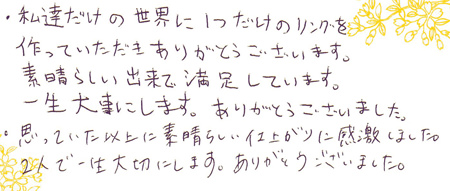 ・私達だけの世界に1つだけのリングを
作っていただきありがとうございます。
素晴らしい出来で満足しています。
一生大事にします。ありがとうございました。
・思っていた以上に素晴らしい仕上がりに感激しました。
2人で一生大切にします。ありがとうございました。